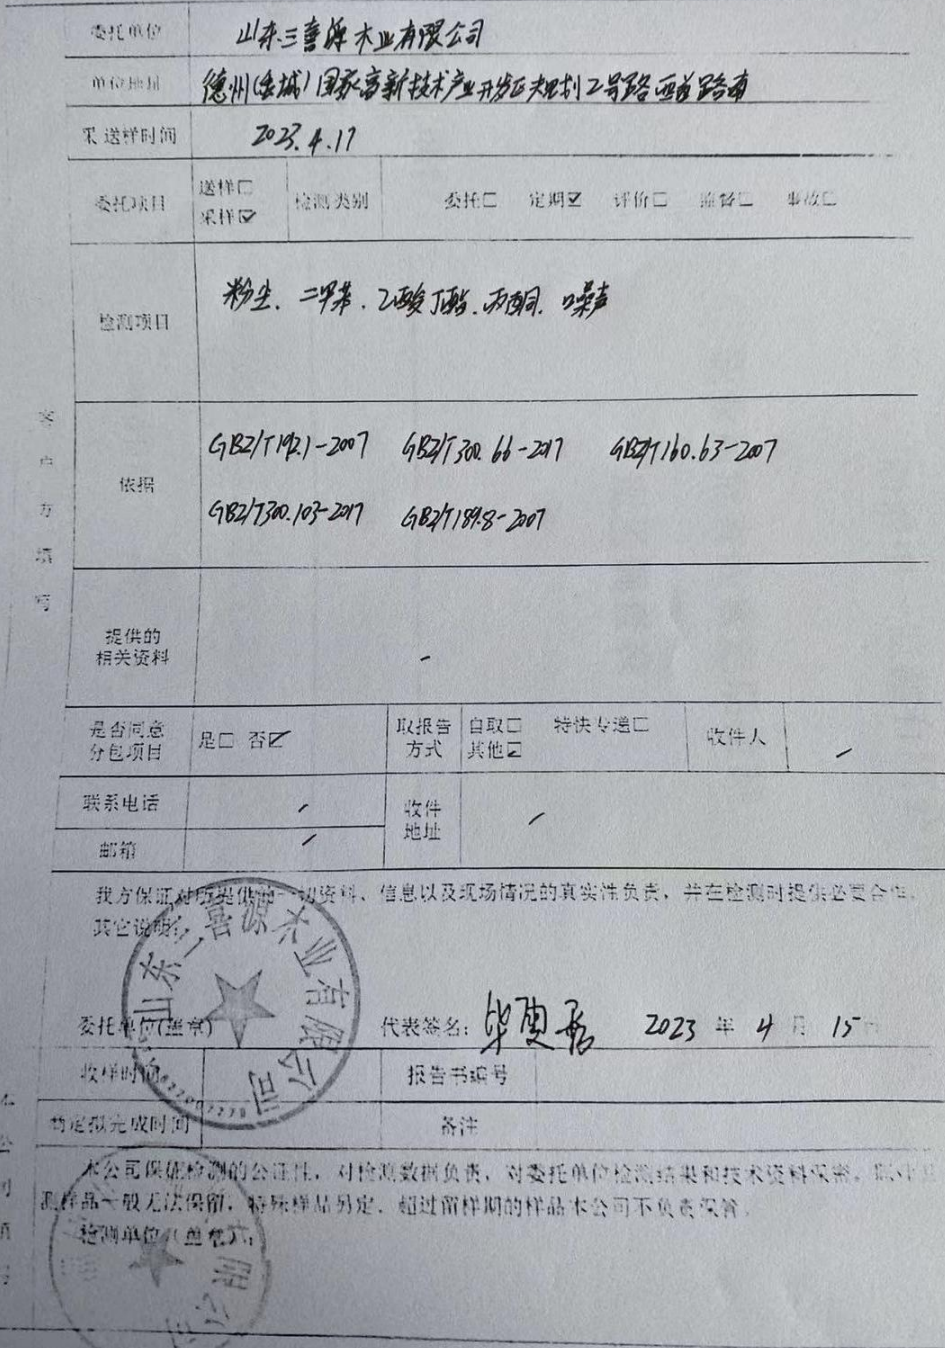 委托单位 山东三喜源木业有限公司
单位地址 德州(禹城)国家高新技术产业开发区大规划2号路西首路南
采送样时间 2023.4.17
委托项目 送样□ 采样☑ 检测类别 委托□ 定期☑ 评价□ 监督□ 事故□
检测项目 粉尘、二甲苯、乙酸丁酯、丙酮、噪声
客户方填写
依据 GBZ/T192.1-2007 GBZ/T300.66-2017 GBZ/T160.63-2007
GBZ/T300.103-2017 GBZ/T189.8-2007
提供的
相关资料 /
是否同意
分包项目 是□ 否☑ 取报告
方式 自取□ 特快专递□
其他☑ 收件人 /
联系电话 / 收件
地址 /
邮箱 /
我方保证对所提供的一切资料、信息以及现场情况的真实性负责，并在检测时提供必要合作。
其它说明：
山东三喜源木业有限公司
委托单位(盖章) 代表签名： 2023 年 4 月 15日
收样时间 报告书编号
暂定拟完成时间 备注
本公司保证检测的公正性，对检测数据负责，对委托单位检测结果和技术资料保密。
测样品一般无法保留，特殊样品另定，超过留样期的样品本公司不负责保管。
检测单位（盖章）：
限公司